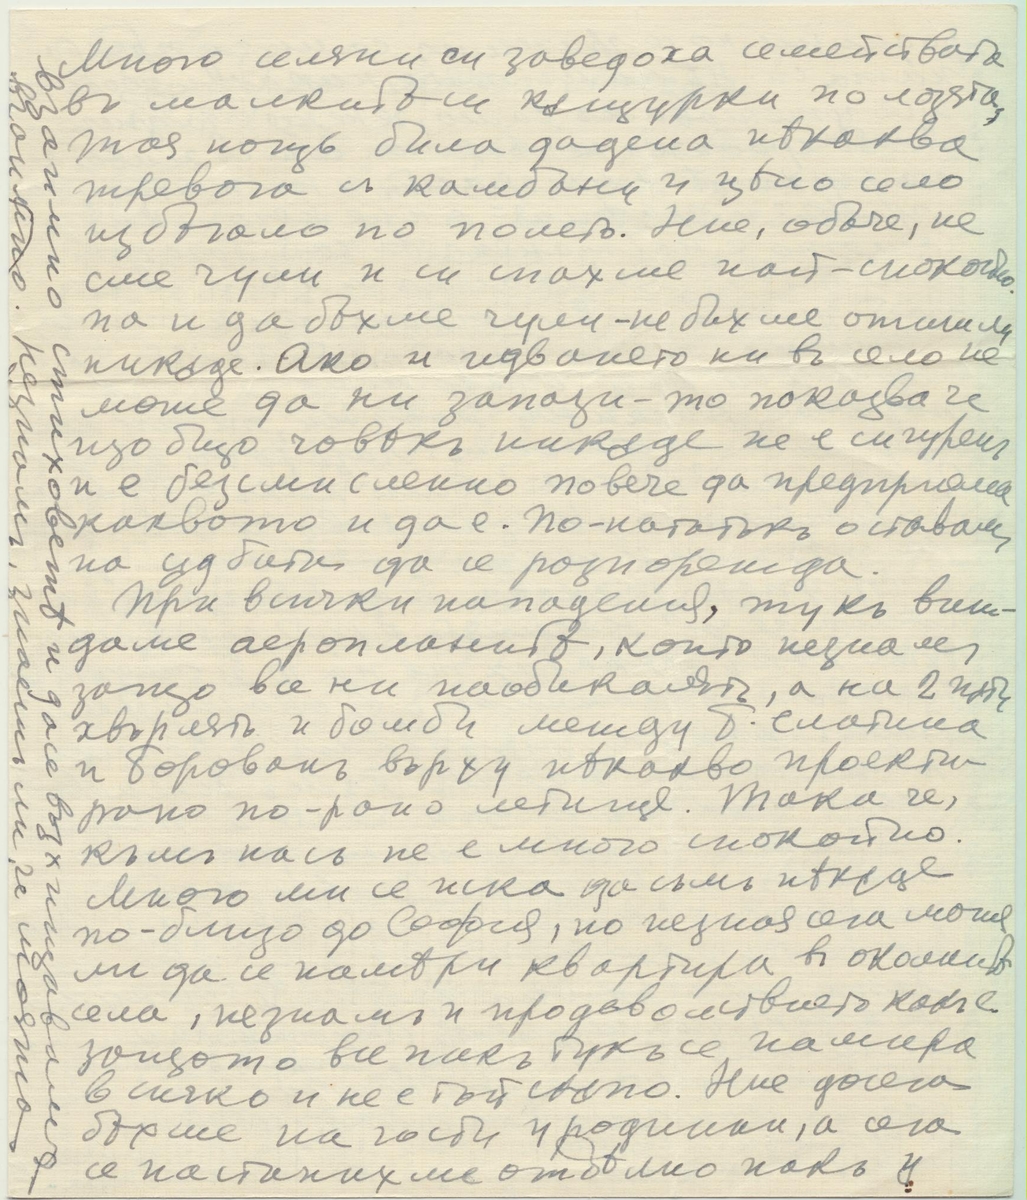 Много селяни си заведоха семействата
въ малкитѣ си кѫщурки по лозята,
тая нощь била дадена нѣкаква
тревога съ камбани и цѣло село
избѣгало по полето. Ние, обаче, не
сме чули и си спахме най-спокойно.
па и да бѣхме чули - не бѣхме отишли
никѫде. Ако и идването ни въ село не
може да ни запази - то показва че
изобщо човѣкъ никѫде не е сигуренъ
и е безсмисленно повече да предприема
каквото и да е. По-нататъкъ оставамъ
на сѫдбата да се разпорежда.
При всички нападения, тукъ виж-
даме аеропланитѣ, които незнамъ
защо все ни наобикалятъ, а на 2 пѫти
хвърлятъ и бомби между Б. Слатина
и Борованъ върху нѣкакво проекти-
рано по-рано летище. Така че,
къмъ насъ не е много спокойно.
Много ми се иска да съмъ нѣкѫде
по-близо до София, но незная сега може
ли да се намѣри квартира въ околнитѣ
села, незнамъ и продоволствието какъ е
защото все пакъ тукъ се намира
всичко и не е тъй скѫпо. Ние досега
бѣхме на гости у роднини, а сега
се настанихме отдѣлно пакъ у
взаимно стиховетѣ и да се възхищаваме
взаимно. Незнамъ, знаешъ ли, че моята